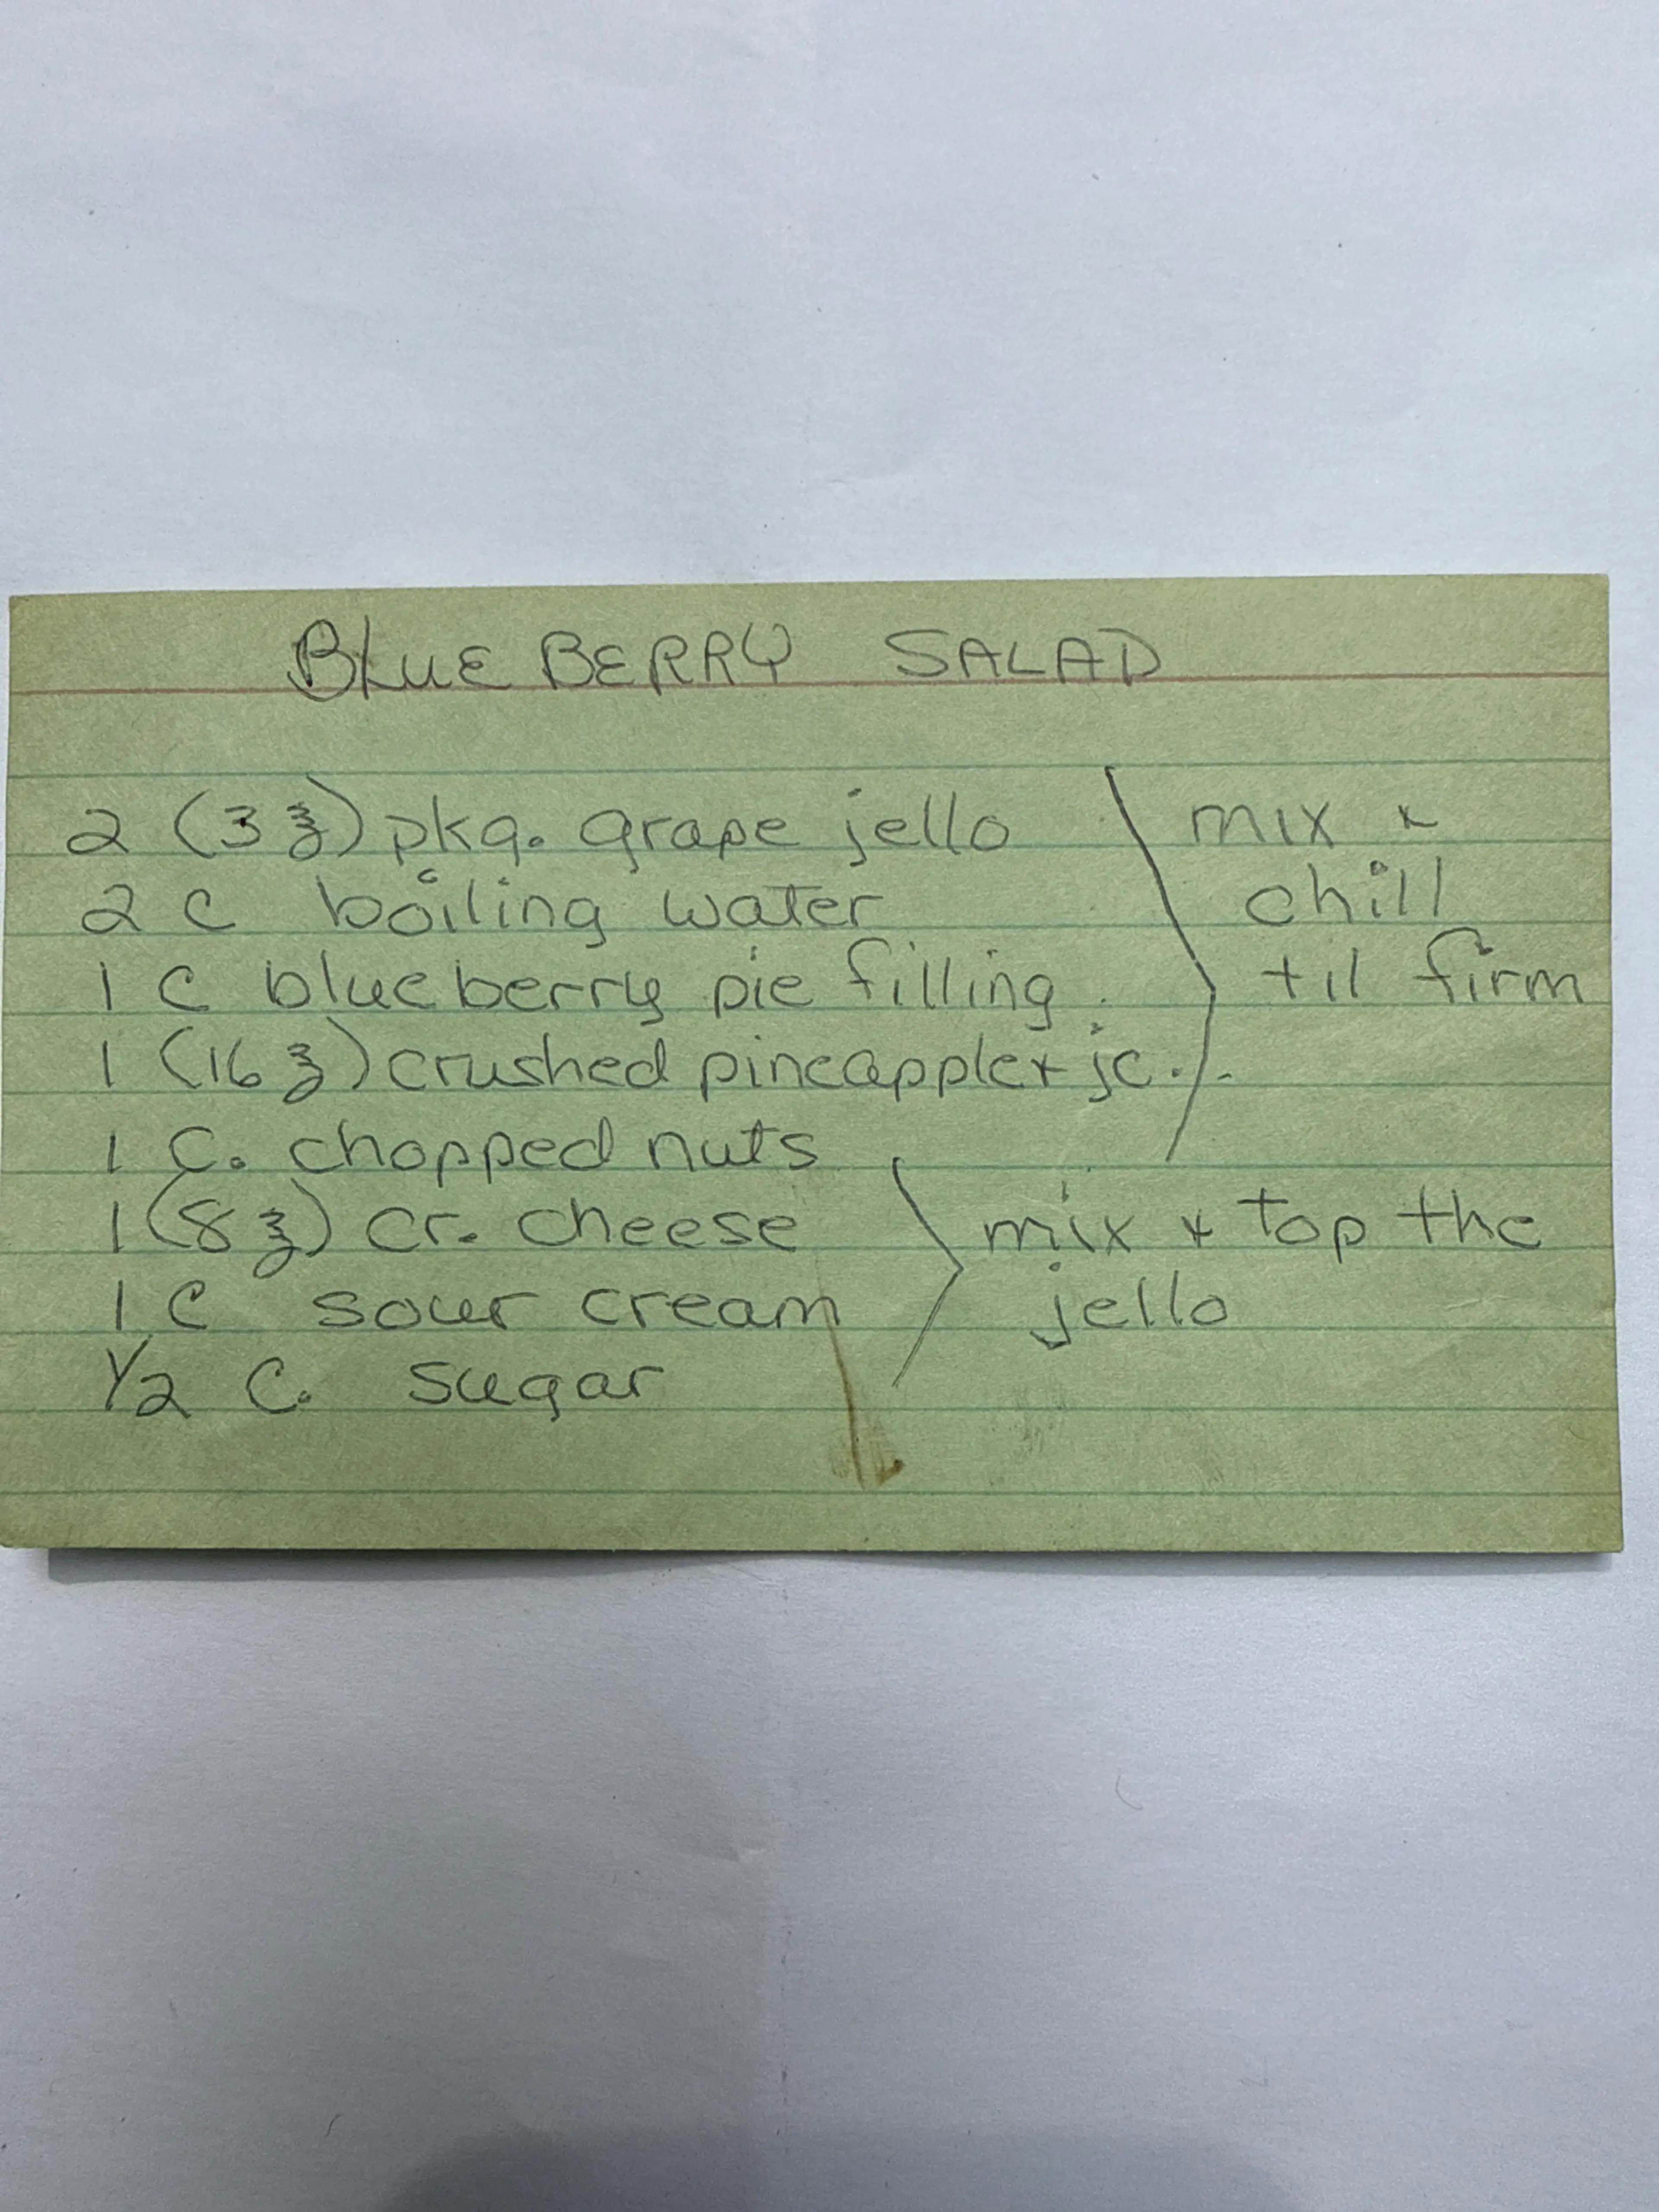 BLUEBERRY SALAD
2 (3 ℥) pkg. grape jello
mix +
2 C boiling water
chill
1 C blueberry pie filling
til firm
1 (16 ℥) crushed pineapple + jc.
1 C. chopped nuts
1 (8 ℥) cr. cheese
mix + top the
1 C sour cream
jello
1/2 C. sugar